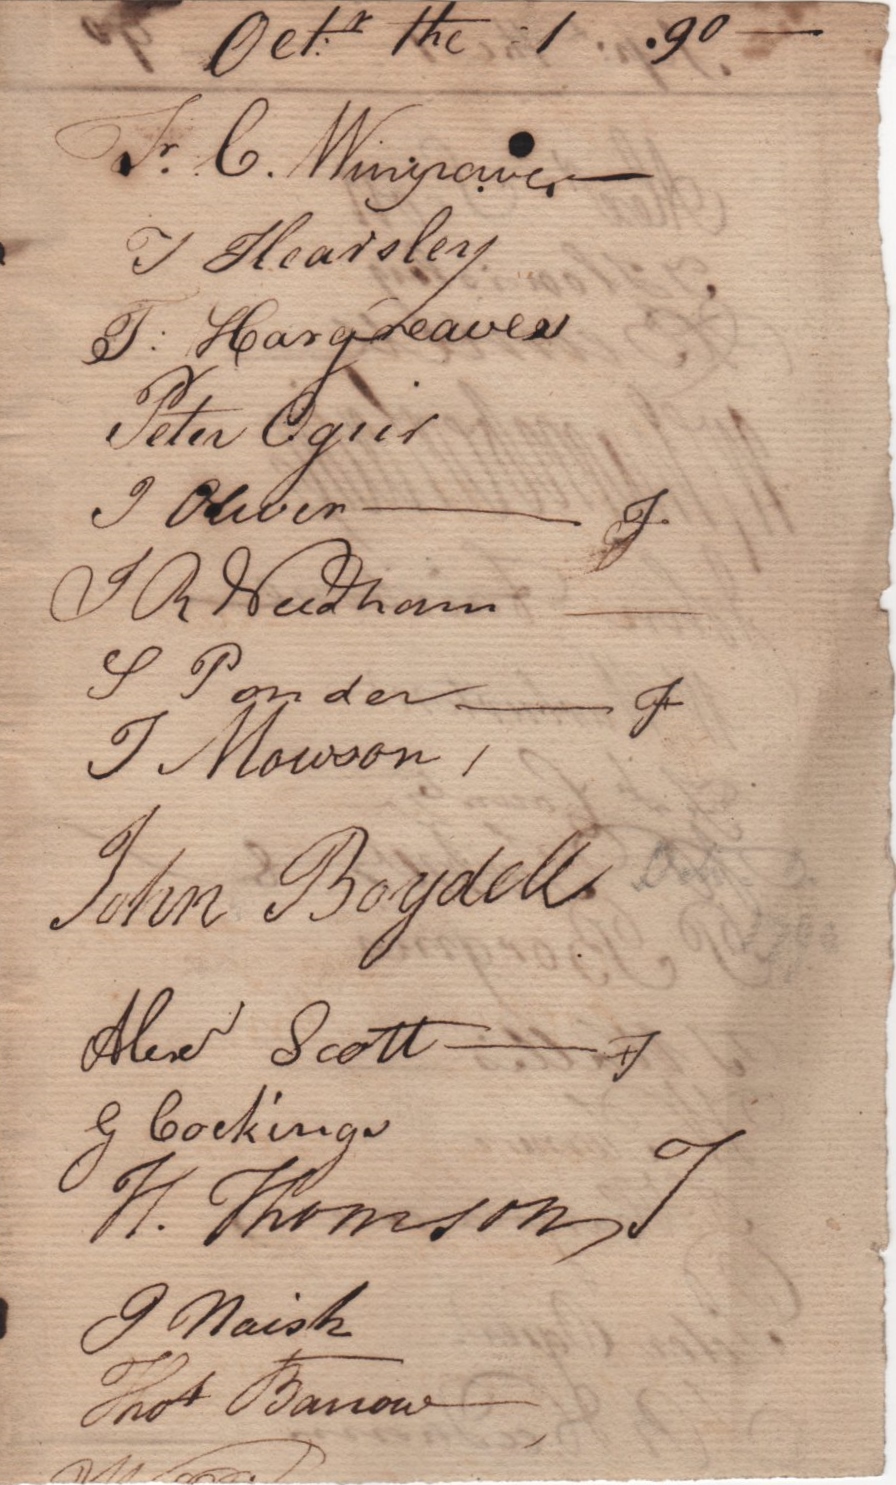 Octr the 1 .90
Fr. C. Wingrave
T Hearsley
T: Hargreaves
Peter
J Oliver F
J R Needham
S Ponder F
T Mowson
John Boydell
Alexr Scott F
G Cockings
H. Thomson F
J Naish
Thos Barrow